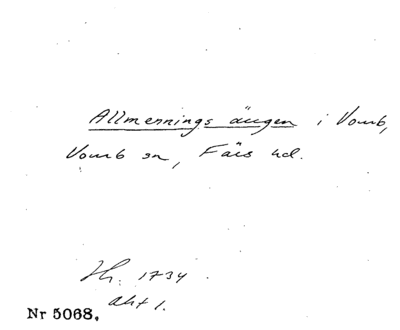 Allmennings ängen i Vomb,
Vomb sn, Färs hd.
Jfr. 1734
akt 1.
Nr 5068.